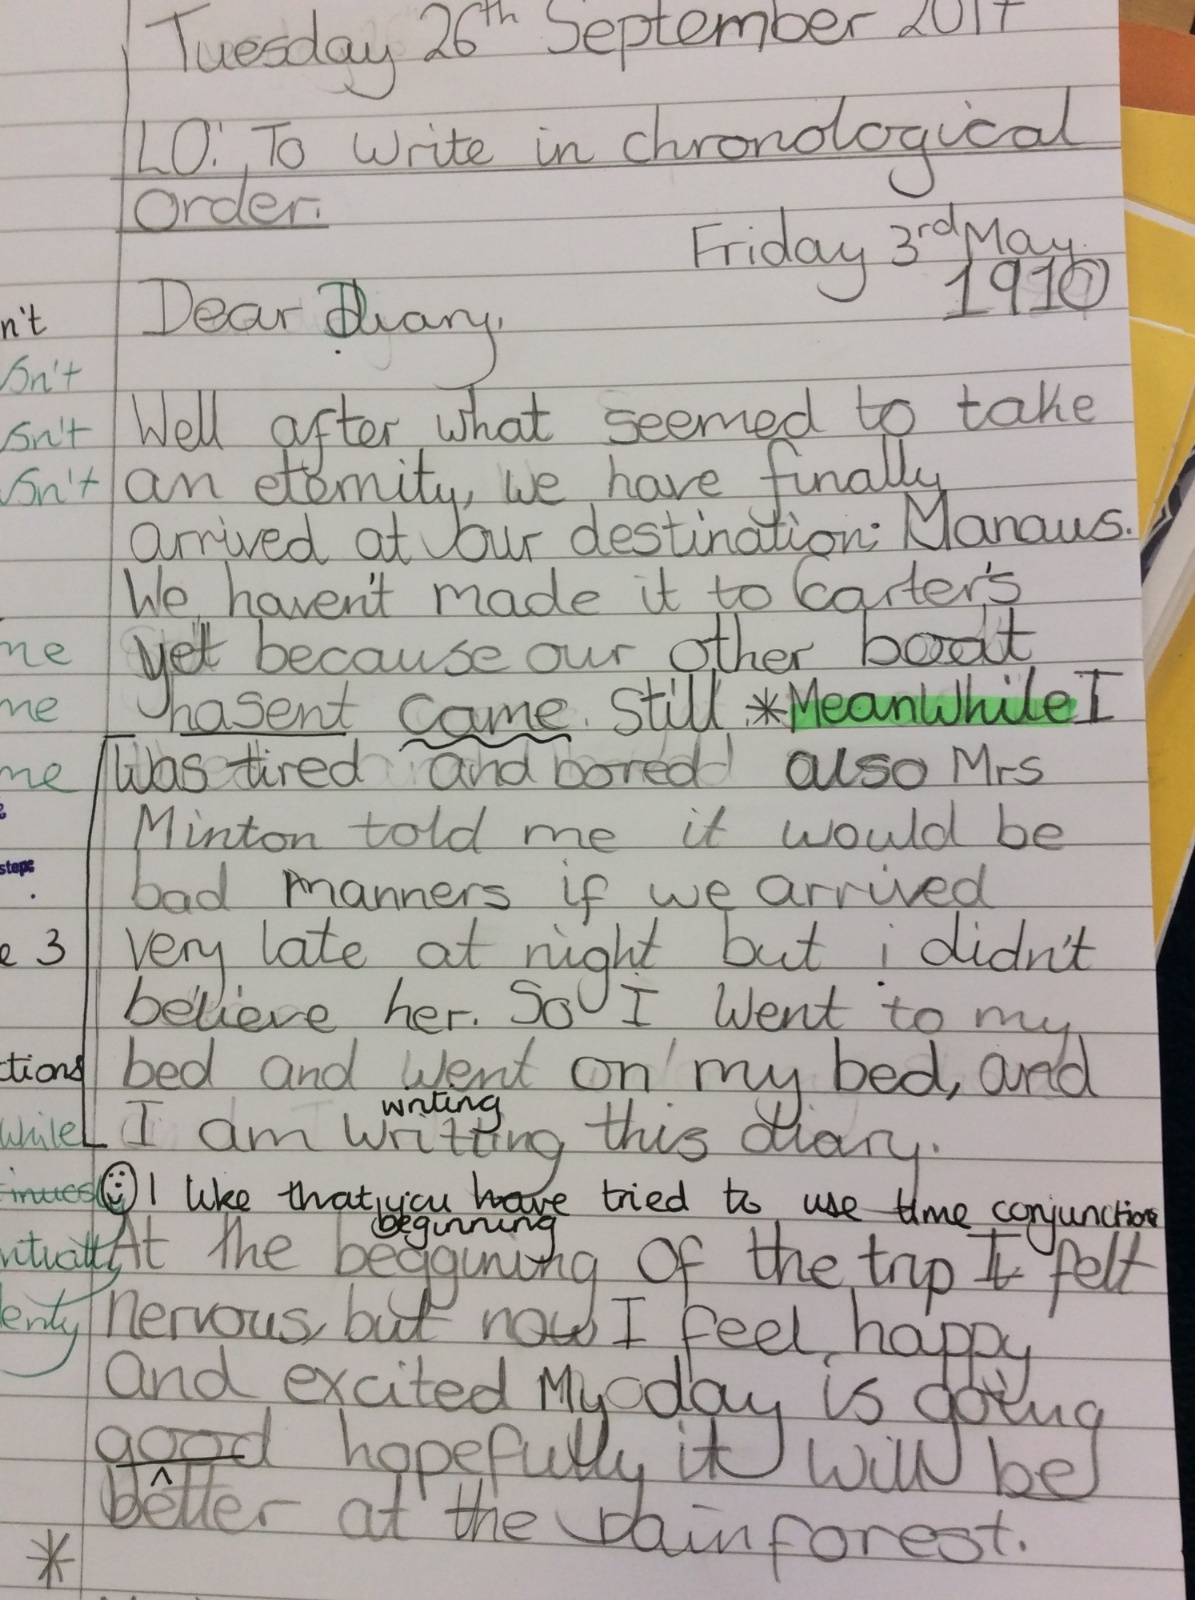 Tuesday 26th September 2017
LO: To write in chronological
order.
Friday 3rd May
1910
n't
Dear Diary,
sn't
sn't
Well after what seemed to take
sn't
an eternity, we have finally
arrived at our destination: Manaus.
We haven't made it to Carter's
me
yet because our other boat
me
hasent came still *Meanwhile I
me
Was tired and bored also Mrs
Minton told me it would be
steps
bad manners if we arrived
e 3
very late at night but i didn't
believe her. So I Went to my
ctions
bed and went on my bed, and
writing
while
I am writting this diary.
I like that you have tried to use time conjunctions
beginning
At the beggining of the trip I felt
nervous, but now I feel happy
and excited My day is going
good hopefully it will be
^
better at the rainforest.
*